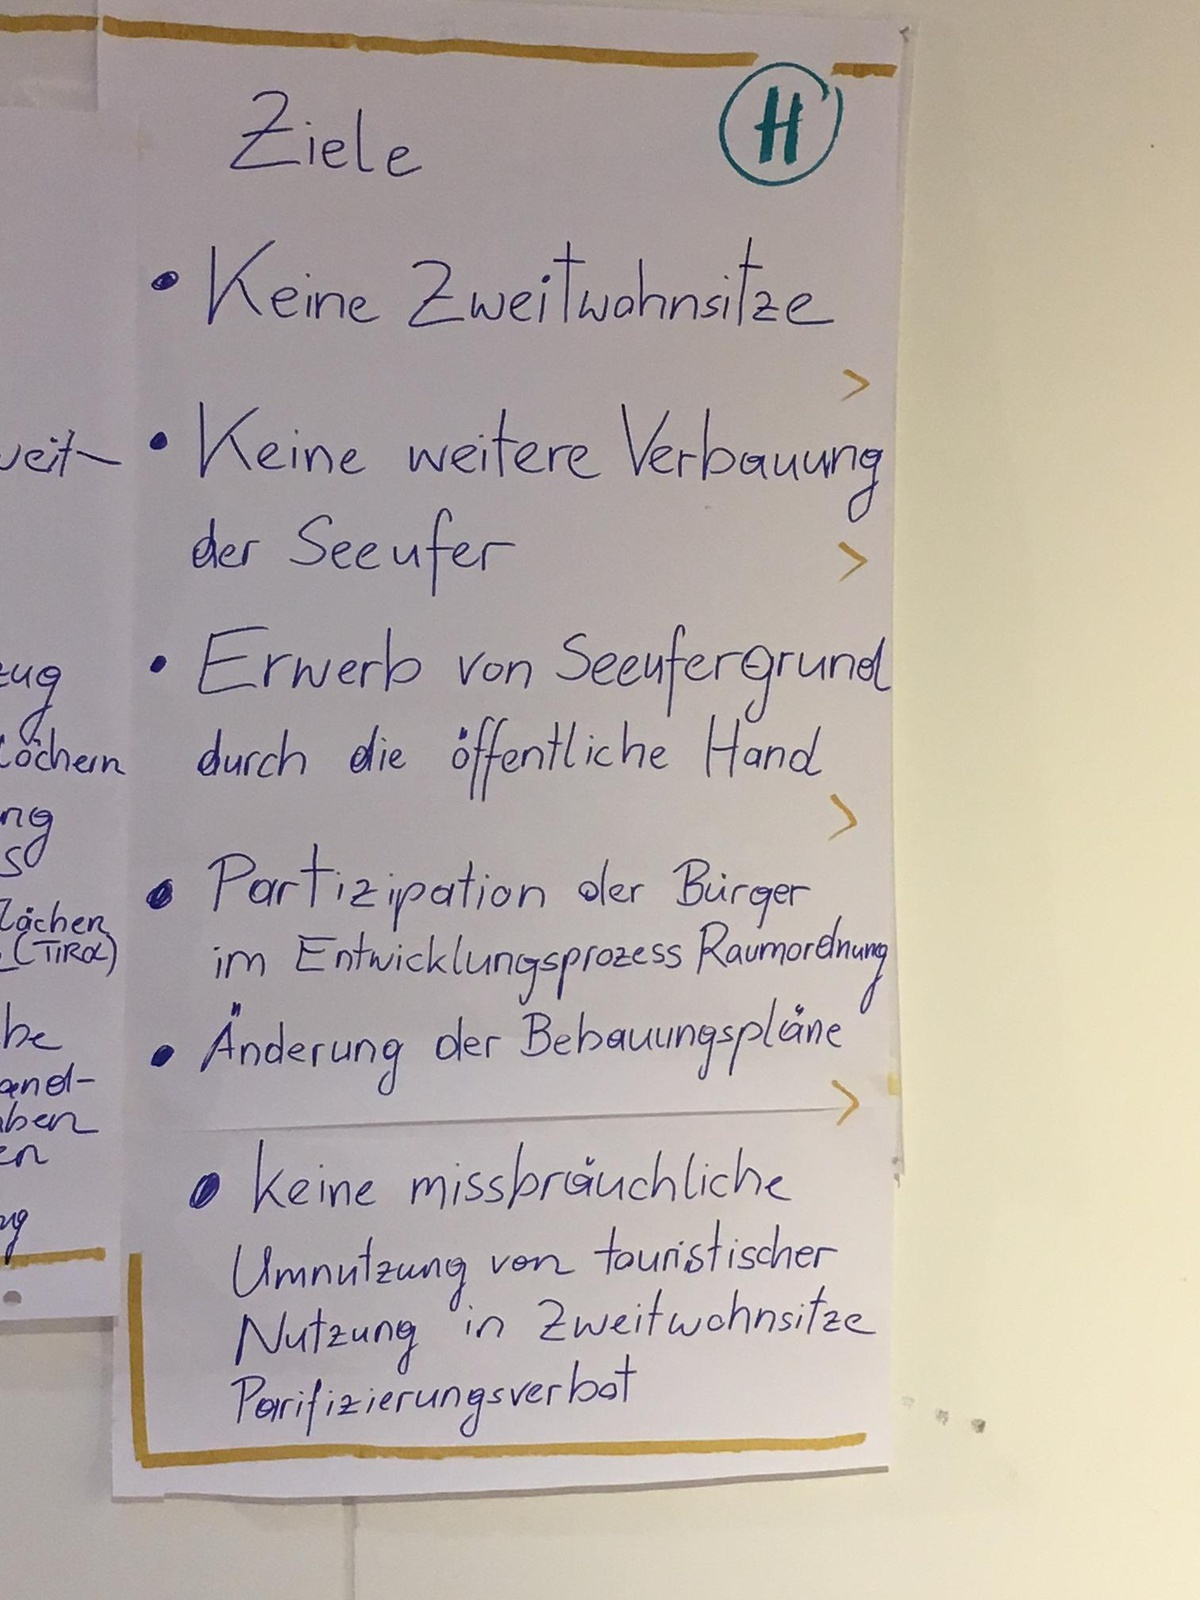 Ziele
H
• Keine Zweitwohnsitze
>
• Keine weitere Verbauung
der Seeufer
>
• Erwerb von Seeufergrund
durch die öffentliche Hand
>
• Partizipation der Bürger
im Entwicklungsprozess Raumordnung
• Änderung der Bebauungspläne
>
• keine missbräuchliche
Umnutzung von touristischer
Nutzung in Zweitwohnsitze
Parifizierungsverbot